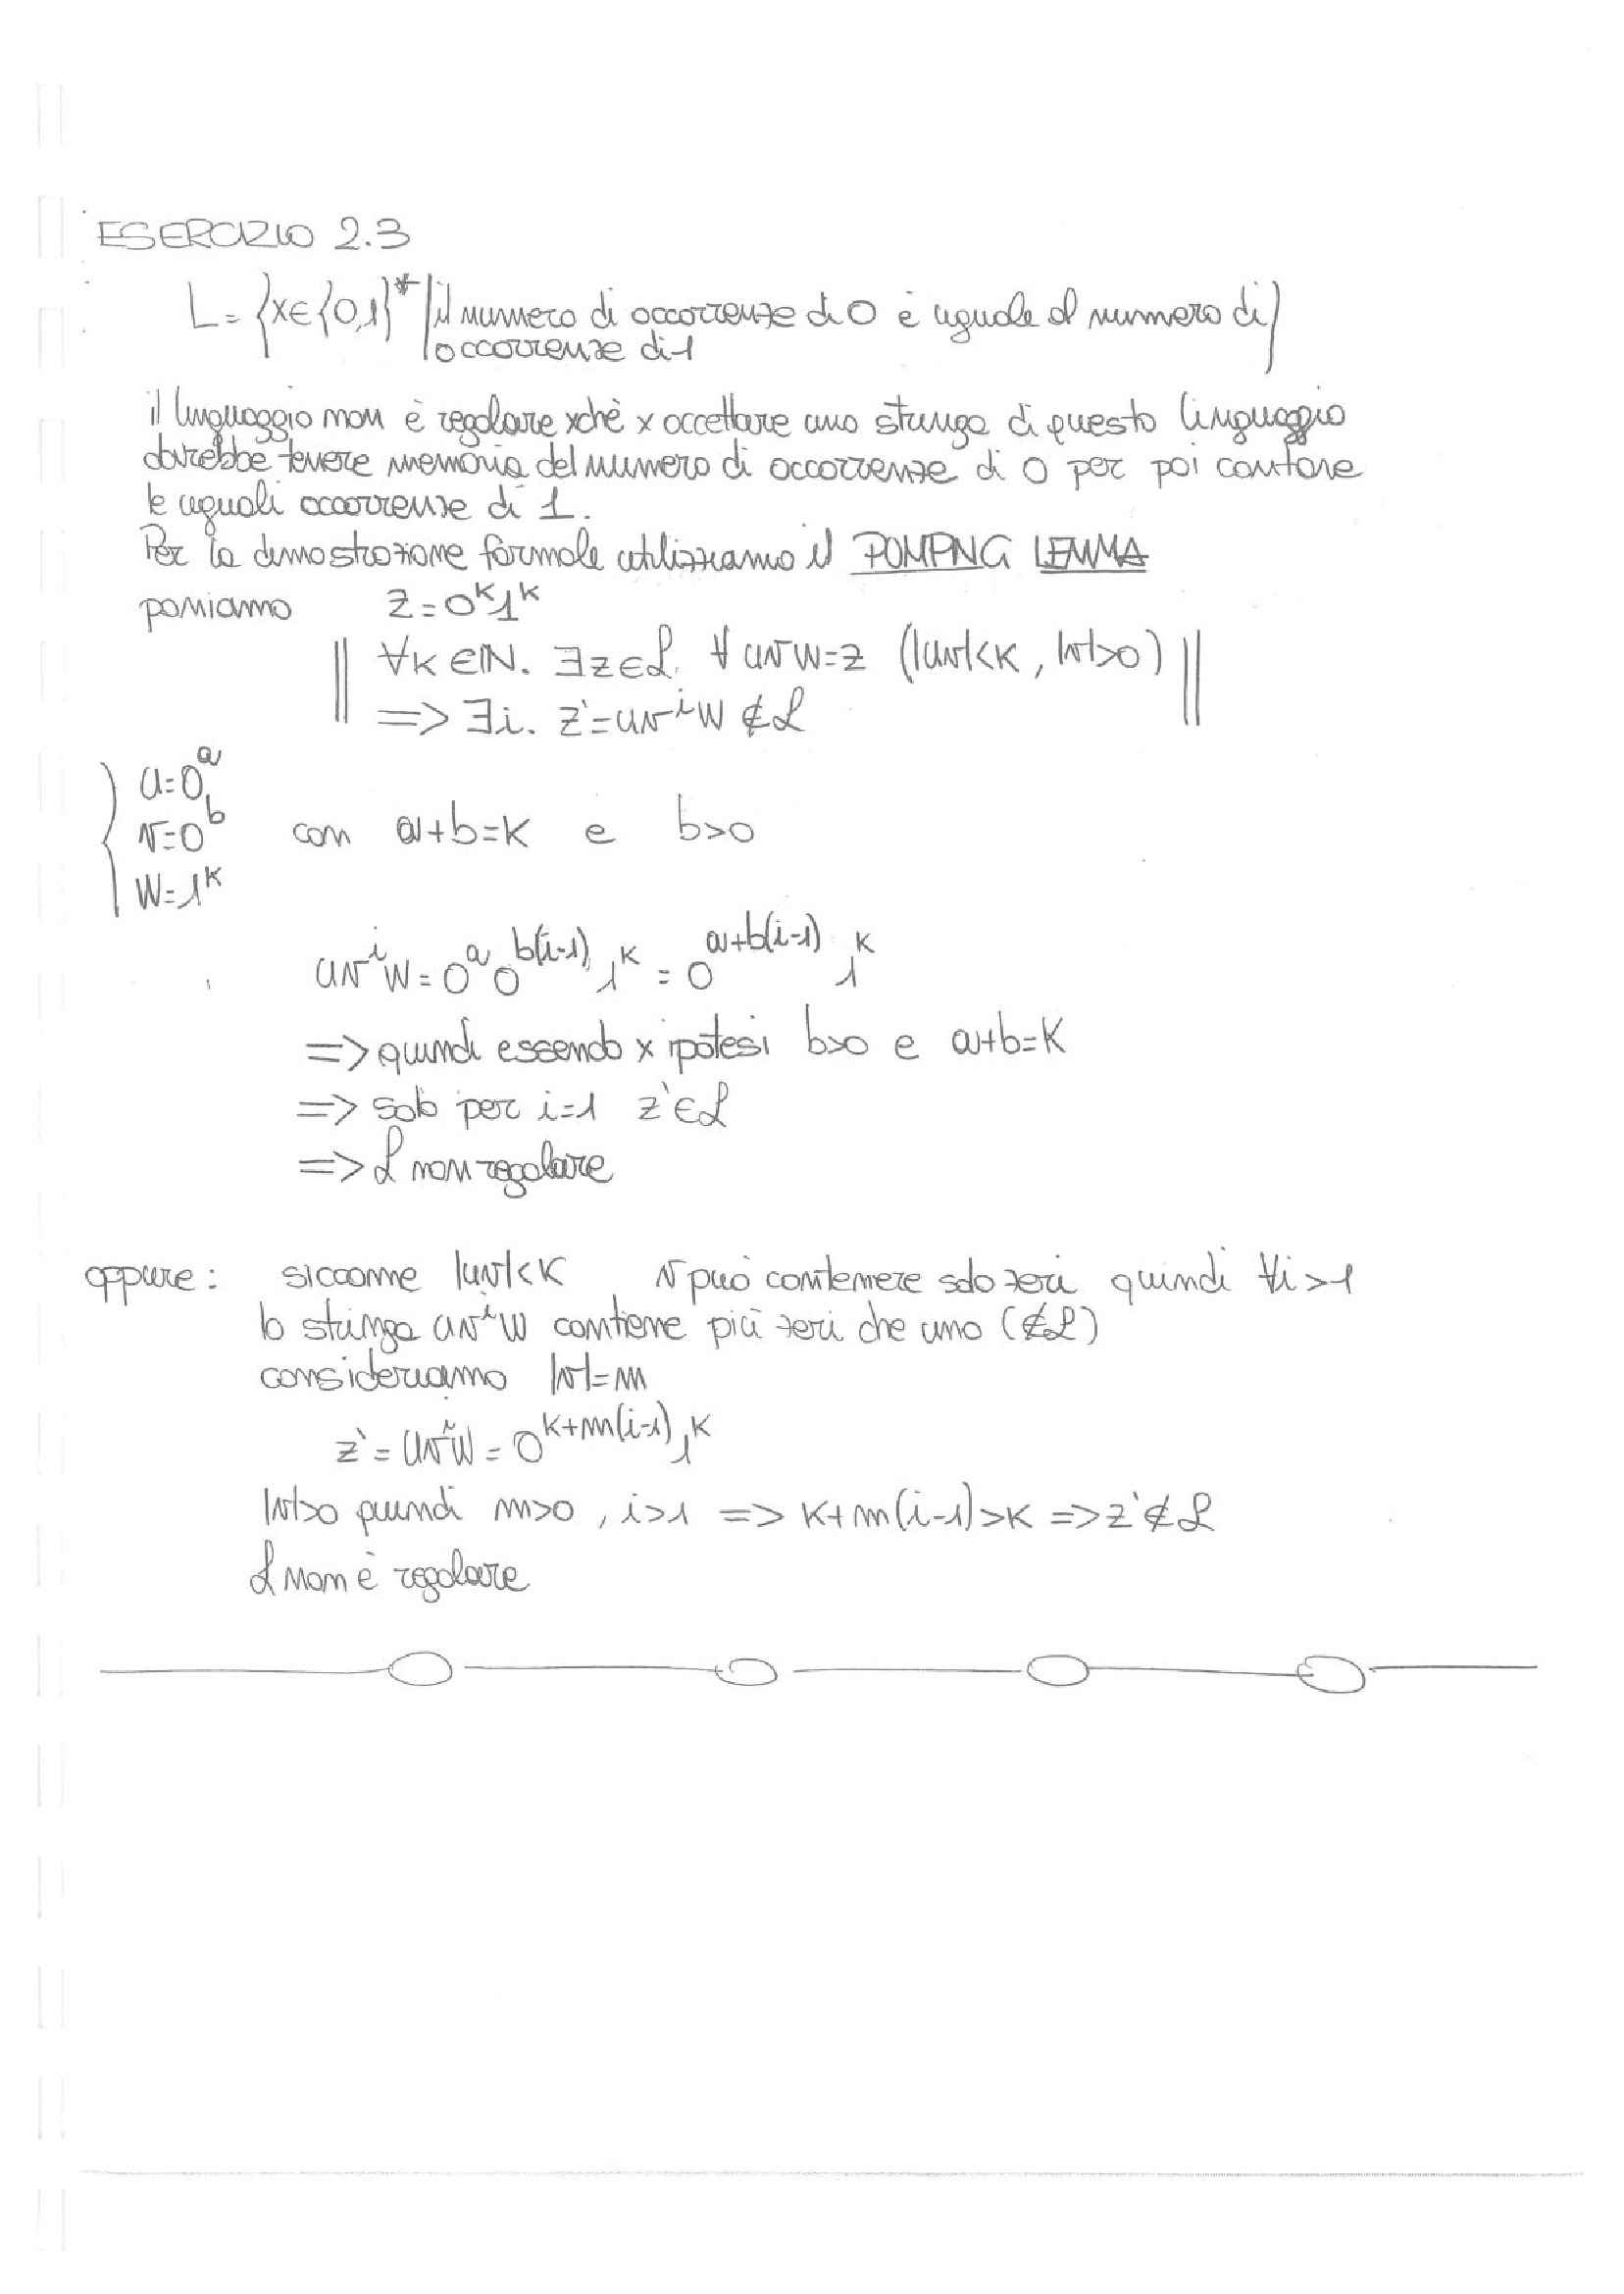 ESERCIZIO 2.3
L = {x∈{0,1}* | il numero di occorrenze di 0 è uguale al numero di
occorrenze di 1}
il linguaggio non è regolare xchè x accettare una stringa di questo linguaggio
dovrebbe tenere memoria del numero di occorrenze di 0 per poi contare
le uguali occorrenze di 1.
Per la dimostrazione formale utilizziamo il POMPNG LEMMA
poniamo z = 0^k 1^k
|| ∀k ∈ℕ. ∃z∈ℒ. ∀ uvw=z (|uv|<k, |v|>0) ||
=> ∃i. z'=uv^i w ∉ ℒ
{ u=0^a
v=0^b con a+b=k e b>0
w=1^k
uv^i w = 0^a 0^b(i-1) 1^k = 0^a+b(i-1) 1^k
=> quindi essendo x ipotesi b>0 e a+b=k
=> solo per i=1 z'∈ℒ
=> ℒ non regolare
oppure: siccome |uv|<k v può contenere solo zeri quindi ∀i>1
la stringa uv^i w contiene più zeri che uno (∉ℒ)
consideriamo |v|=m
z' = uv^i w = 0^k+m(i-1) 1^k
|v|>0 quindi m>0, i>1 => k+m(i-1)>k => z'∉ℒ
ℒ non è regolare